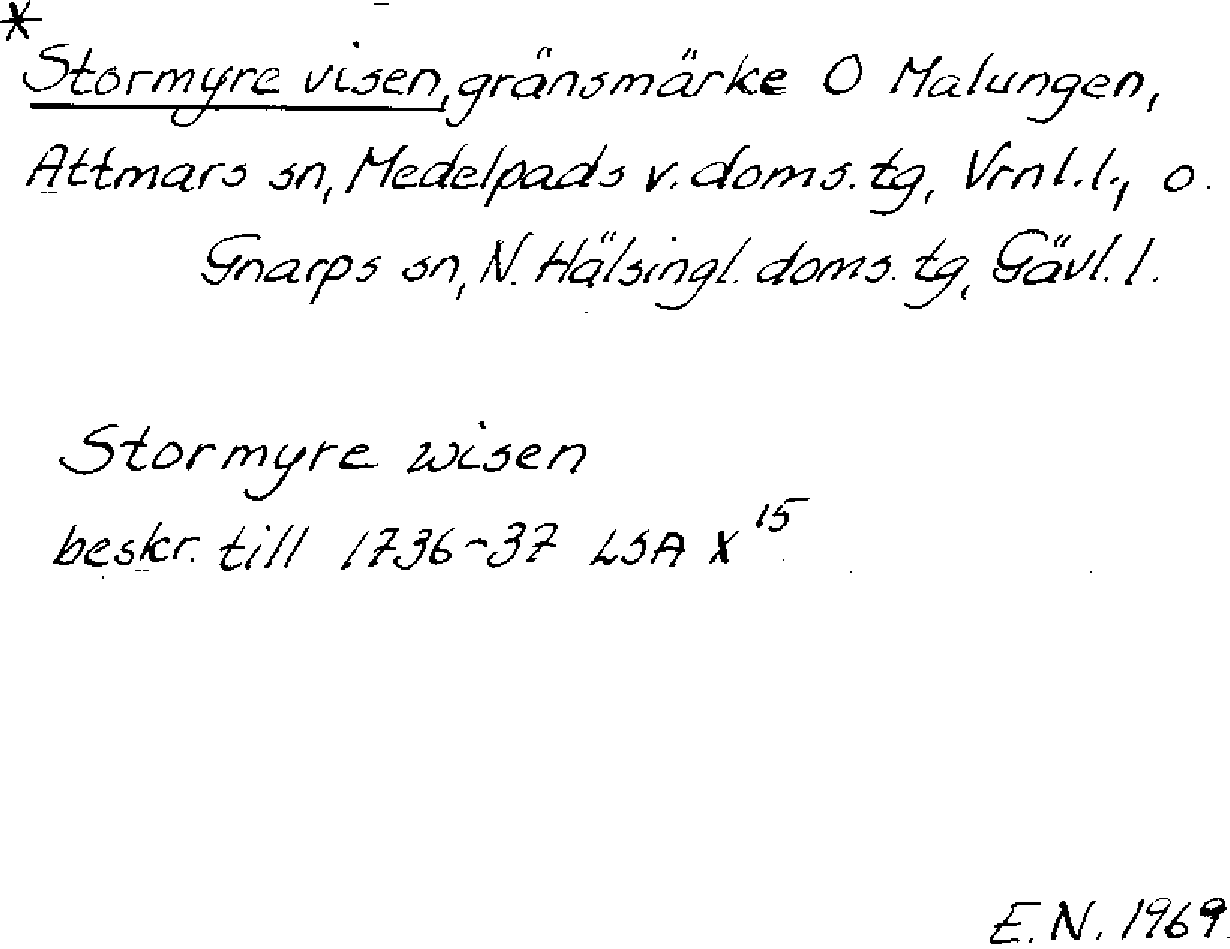 *
Stormyre visen, gränsmärke O Malungen,
Attmars sn, Medelpads v. doms. tg, Vrnl. l., o.
Gnarps sn, N. Hälsingl. doms. tg, Gävl. l.
Stormyre wisen
beskr. till 1736-37 LSA X 15
E. N. 1969